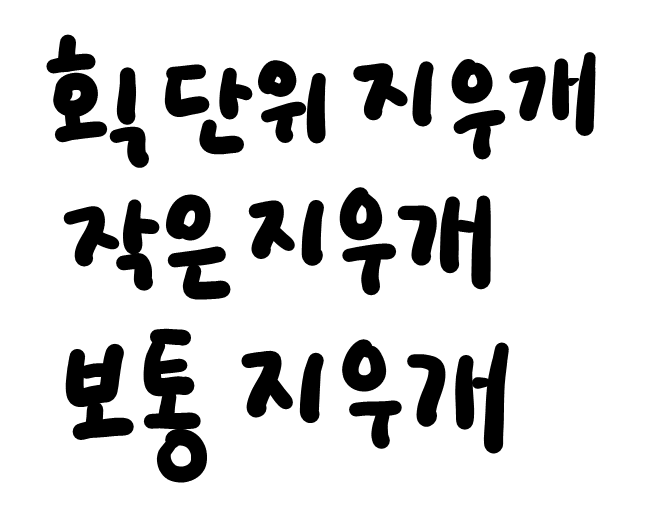 획 단위 지우개
작은 지우개
보통 지우개